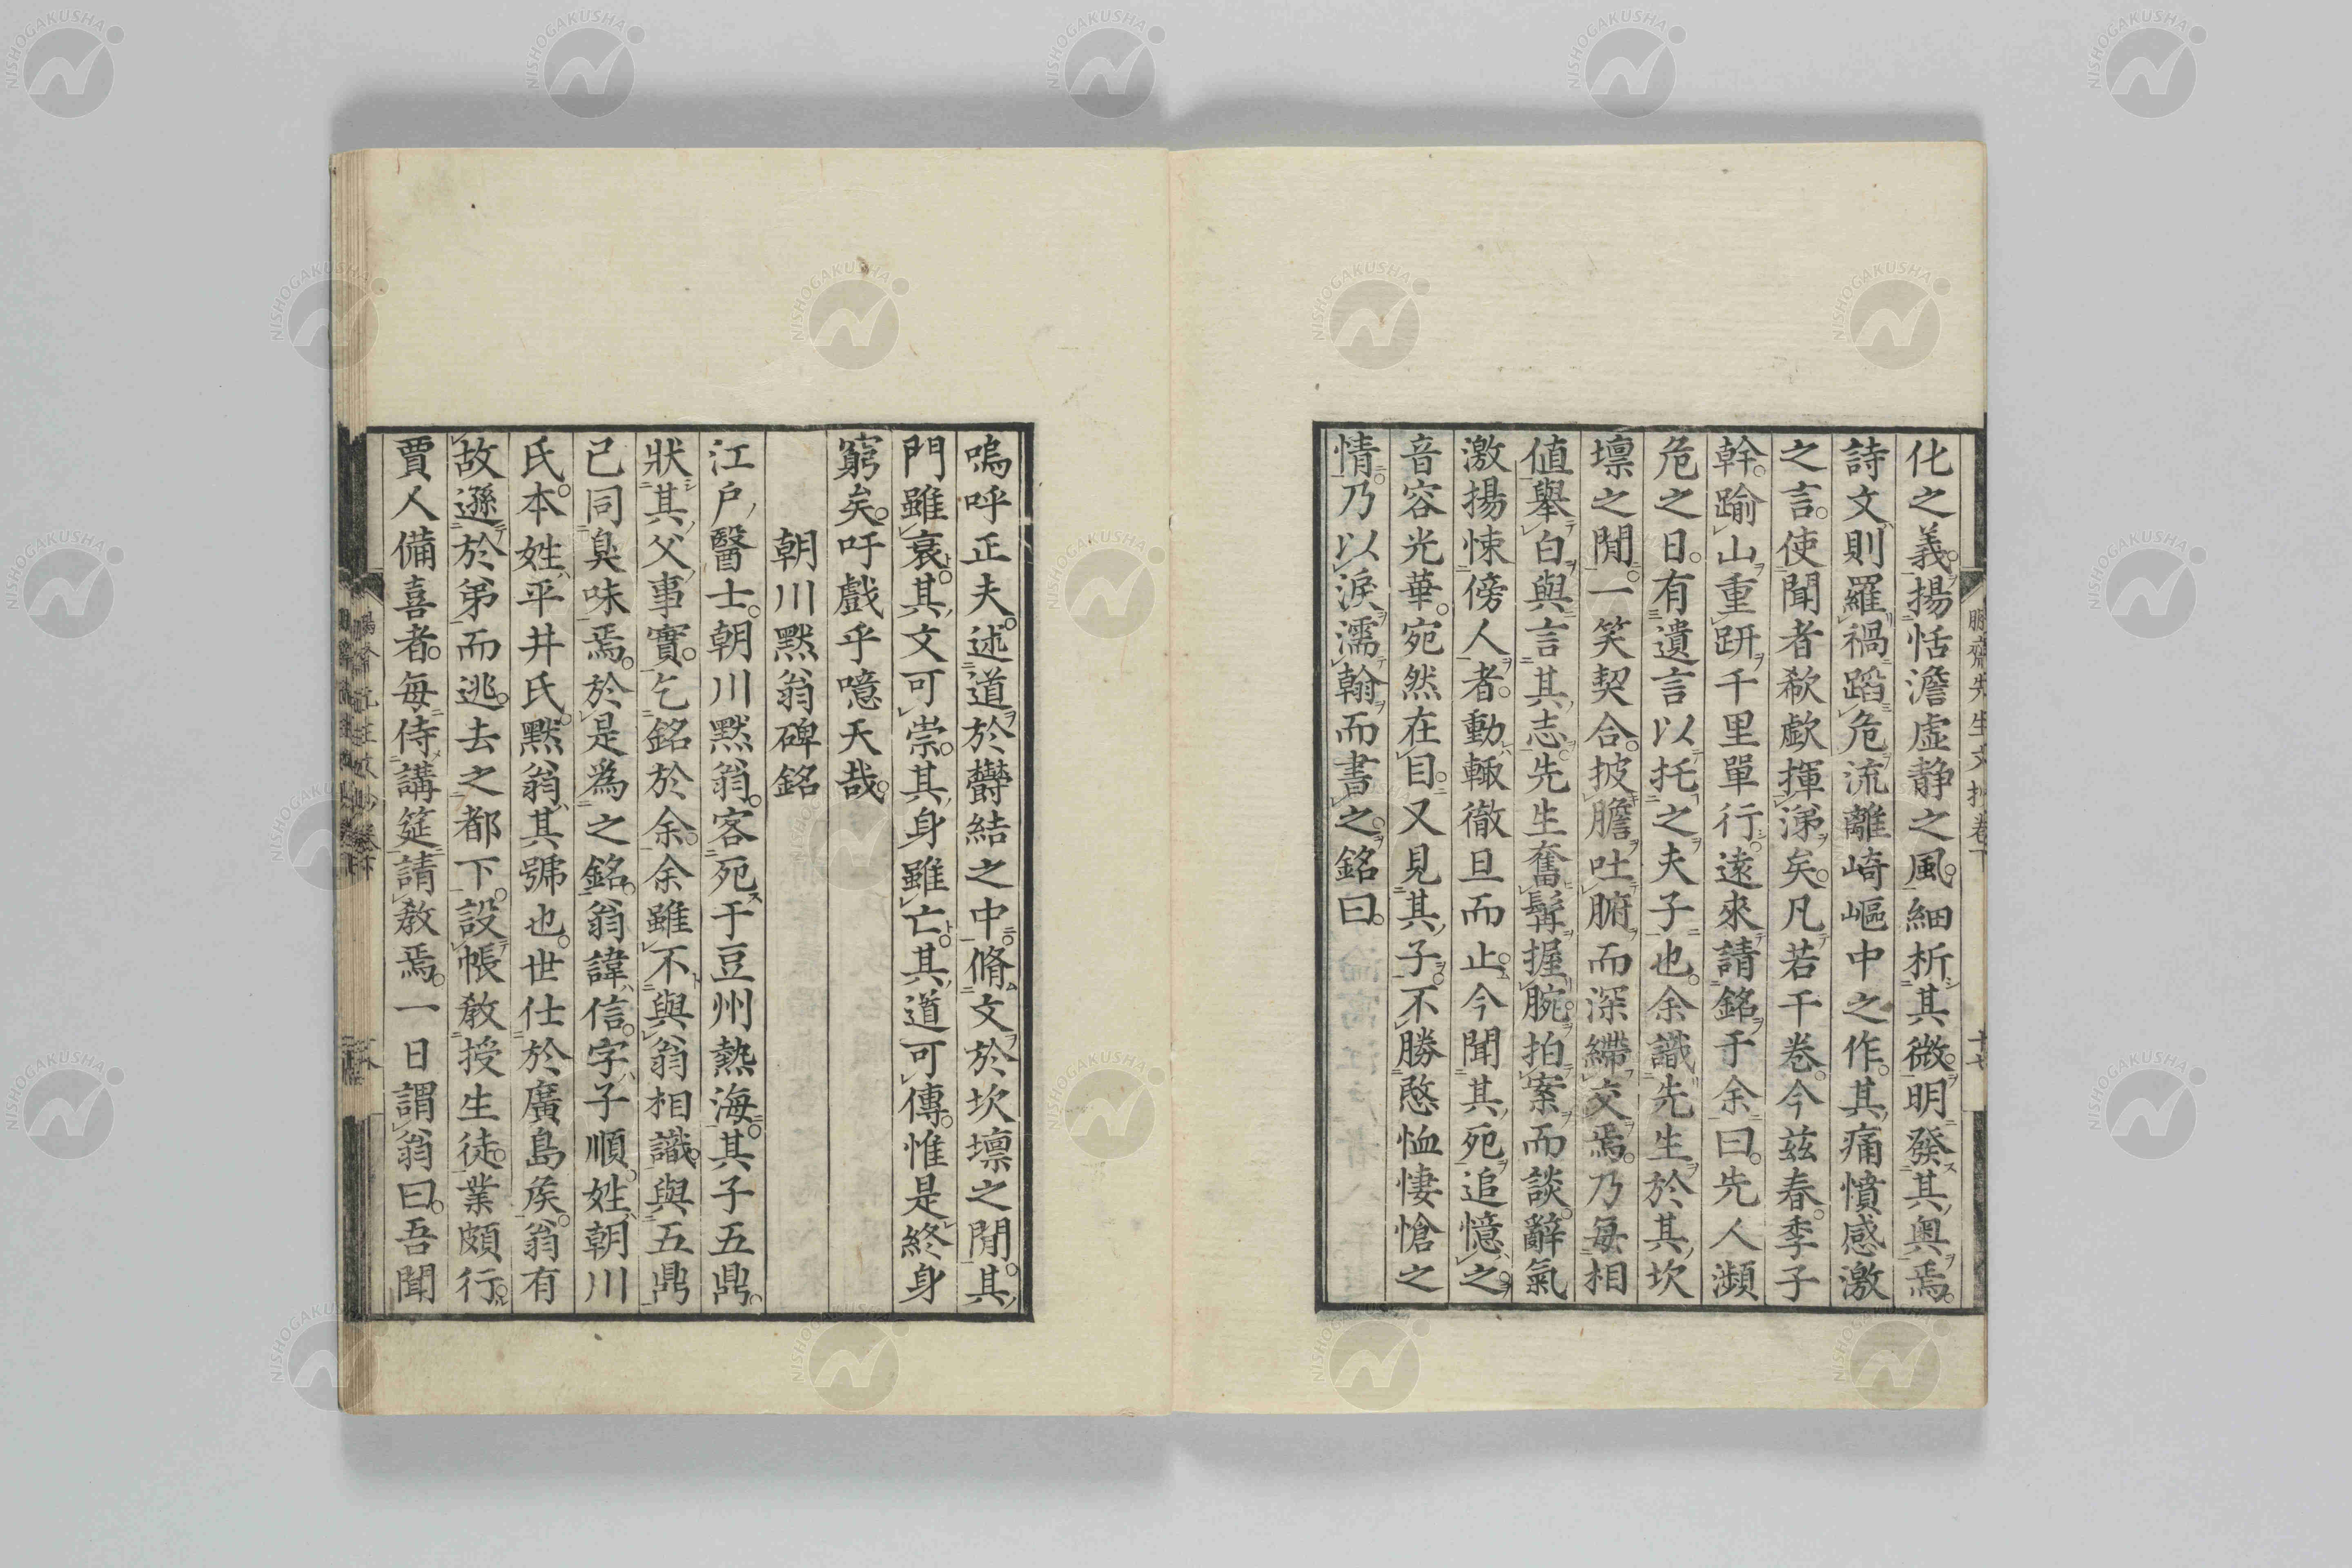 化之義揚恬澹虛靜之風細析其微明發其奥焉
詩文則羅禍蹈危流離崎嶇中之作其痛憤感激
之言使聞者欷歔揮涕矣凡若干巻今茲春季子
幹踰山重趼千里單行遠來請銘于余曰先人瀕
危之日有遺言以托之夫子也余識先生於其坎
壈之閒一笑契合披膽吐腑而深締交焉乃每相
値舉白與言其志先生奮髯握腕拍案而談辭氣
激揚悚傍人者動輙徹旦而止今聞其死追憶之
音容光華宛然在目又見其子不勝愍恤悽愴之
情乃以淚濡翰而書之銘曰
嗚呼正夫述道於欝結之中脩文於坎壈之閒其
門雖衰其文可崇其身雖亡其道可傳惟是終身
窮矣吁戯乎噫天哉
朝川黙翁碑銘
江戶醫士朝川黙翁客死于豆州熱海其子五鼎
狀其父事實乞銘於余余雖不與翁相識與五鼎
己同臭味焉於是爲之銘翁諱信字子順姓朝川
氏本姓平井氏黙翁其號也世仕於廣島矦翁有
故遜於弟而逃去之都下設帳敎授生徒業頗行
賈人備喜者每侍講筵請敎焉一日謂翁曰吾聞